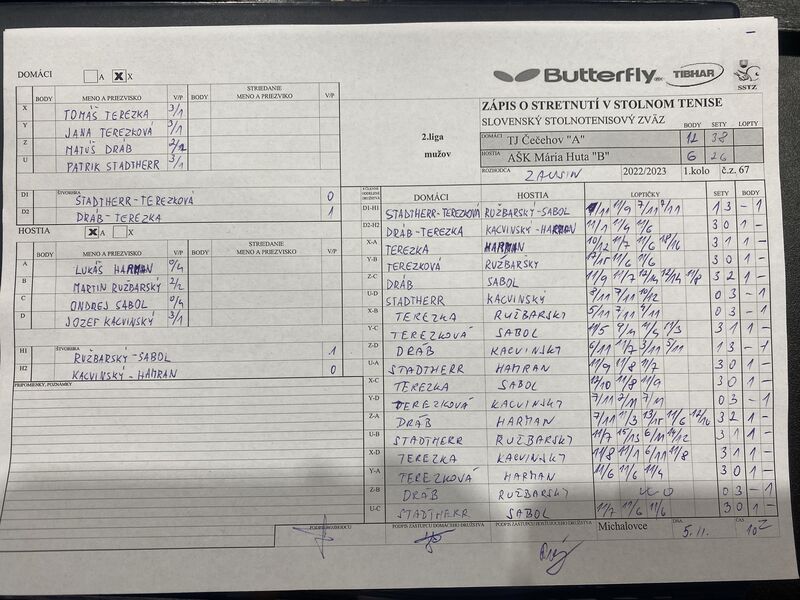 DOMÁCI A X X
Butterfly TIBHAR SSTZ
BODY MENO A PRIEZVISKO V/P BODY STRIEDANIE MENO A PRIEZVISKO V/P
X TOMÁŠ TEREZKA 3/1
Y JANA TEREZKOVÁ 3/1
Z MATÚŠ DRÁB 2/2
U PATRIK STADTHERR 3/1
D1 ŠTVORHRA STADTHERR-TEREZKOVÁ 0
D2 DRÁB-TEREZKA 1
HOSTIA X A X
BODY MENO A PRIEZVISKO V/P BODY STRIEDANIE MENO A PRIEZVISKO V/P
A LUKÁŠ HARMAN 0/4
B MARTIN RUŽBARSKÝ 2/2
C ONDREJ SABOL 0/4
D JOZEF KACVINSKÝ 3/1
H1 ŠTVORHRA RUŽBARSKÝ-SABOL 1
H2 KACVINSKÝ-HAMRAN 0
PRIPOMIENKY, POZNÁMKY
2.liga
mužov
ZÁPIS O STRETNUTÍ V STOLNOM TENISE
SLOVENSKÝ STOLNOTENISOVÝ ZVÄZ BODY SETY LOPTY
DOMÁCI TJ Čečehov "A" 12 38
HOSTIA AŠK Mária Huta "B" 6 26
ROZHODCA ZAUSIN 2022/2023 1.kolo č.z. 67
DOMÁCI HOSTIA LOPTIČKY SETY BODY
D1-H1 STADTHERR-TEREZKOVÁ RUŽBARSKÝ-SABOL 11/9 7/11 1 3 - 1
D2-H2 DRÁB-TEREZKA KACVINSKÝ-HARMAN 11/1 11/9 11/6 3 0 1 -
X-A TEREZKA HARMAN 10/12 11/7 11/6 18/16 3 1 1 -
Y-B TEREZKOVÁ RUŽBARSKÝ 17/15 11/6 11/6 3 0 1 -
Z-C DRÁB SABOL 11/9 11/7 12/14 12/14 11/8 3 2 1 -
U-D STADTHERR KACVINSKÝ 8/11 7/11 10/12 0 3 - 1
X-B TEREZKA RUŽBARSKÝ 5/11 7/11 0 3 - 1
Y-C TEREZKOVÁ SABOL 11/5 11/3 3 1 1 -
Z-D DRÁB KACVINSKÝ 6/11 11/7 3/11 5/11 1 3 - 1
U-A STADTHERR HAMRAN 11/9 11/8 11/7 3 0 1 -
X-C TEREZKA SABOL 12/10 11/8 11/9 3 0 1 -
Y-D TEREZKOVÁ KACVINSKÝ 7/11 7/11 0 3 - 1
Z-A DRÁB HARMAN 7/11 11/3 13/15 11/6 12/10 3 2 1 -
U-B STADTHERR RUŽBARSKÝ 11/7 15/13 6/11 14/12 3 1 1 -
X-D TEREZKA KACVINSKÝ 11/8 11/1 6/11 11/8 3 1 1 -
Y-A TEREZKOVÁ HARMAN 11/6 11/6 11/9 3 0 1 -
Z-B DRÁB RUŽBARSKÝ WO 0 3 - 1
U-C STADTHERR SABOL 11/7 11/6 11/6 3 0 1 -
PODPIS ROZHODCU PODPIS ZÁSTUPCU DOMÁCEHO DRUŽSTVA PODPIS ZÁSTUPCU HOSŤUJÚCEHO DRUŽSTVA Michalovce DŇA 5.11. ČAS